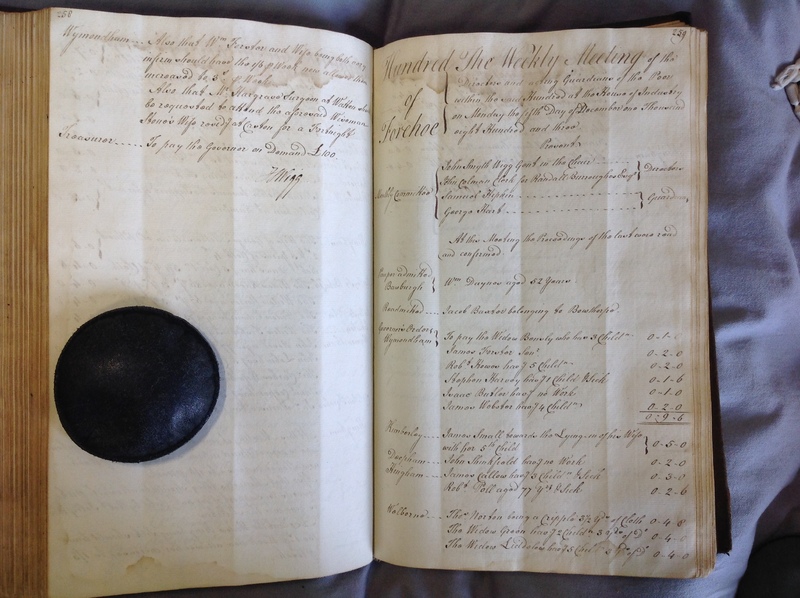 258
Wymondham — Also that Wm. Forster and Wife being both very
infirm should have the 1/6 p Week now allowed them
increased to 3s. p Week.
Also that Mr. Hargrave Surgeon at Watton
be requested to attend the aforesaid Wiseman
Stone's Wife resid.g at Caston for a Fortnight
Treasurer — To pay the Governor on Demand £100
J Wigg
259
Hundred of Forehoe
The Weekly Meeting of the
Directors and acting Guardians of the Poor
within the said Hundred at the House of Industry
on Monday the fifth Day of December one Thousand
eight Hundred and three
Present
Weekly Committee
John Smyth Wigg Gent. in the Chair
John Colman Clerk for Randall Burroughes Esqr.
Directors
Samuel
George Hart
Guardians
At this Meeting the Proceedings of the last were read
and confirmed.
Pauper admitted
Bowburgh
Wm. Daynes aged 52 Years
Readmitted — Jacob Baxter belonging to Bowthorpe
Governor's Orders
Wymondham
To pay the Widow who has 3 Childn. 0-1-
James Forster Senr. 0-2-0
Robt. hav.g 5 Childn. 0-2-0
Stephen Harvey hav.g 1 Child & Sick 0-1-6
Isaac Butler hav.g no Work 0-1-0
James Webster hav.g 4 Childn. 0-2-0
0-9-6
Kimberley — James Small towards the Lying in of his Wife
with her 5th. Child 0-5-0
Deopham — John hav.g no Work 0-2-0
Hingham — James hav.g 3 Childn. & Sick 0-3-0
Robt. Poll aged 77 Yrs. & Sick 0-2-6
Welborne — Thos. Norton being a Cripple 3½ Yds. of Cloth 0-4-8
The Widow Green hav.g 2 Childn. 3 Yds. of do. 0-4-
The Widow hav.g 5 Childn. 3 Yds. of do. 0-4-0